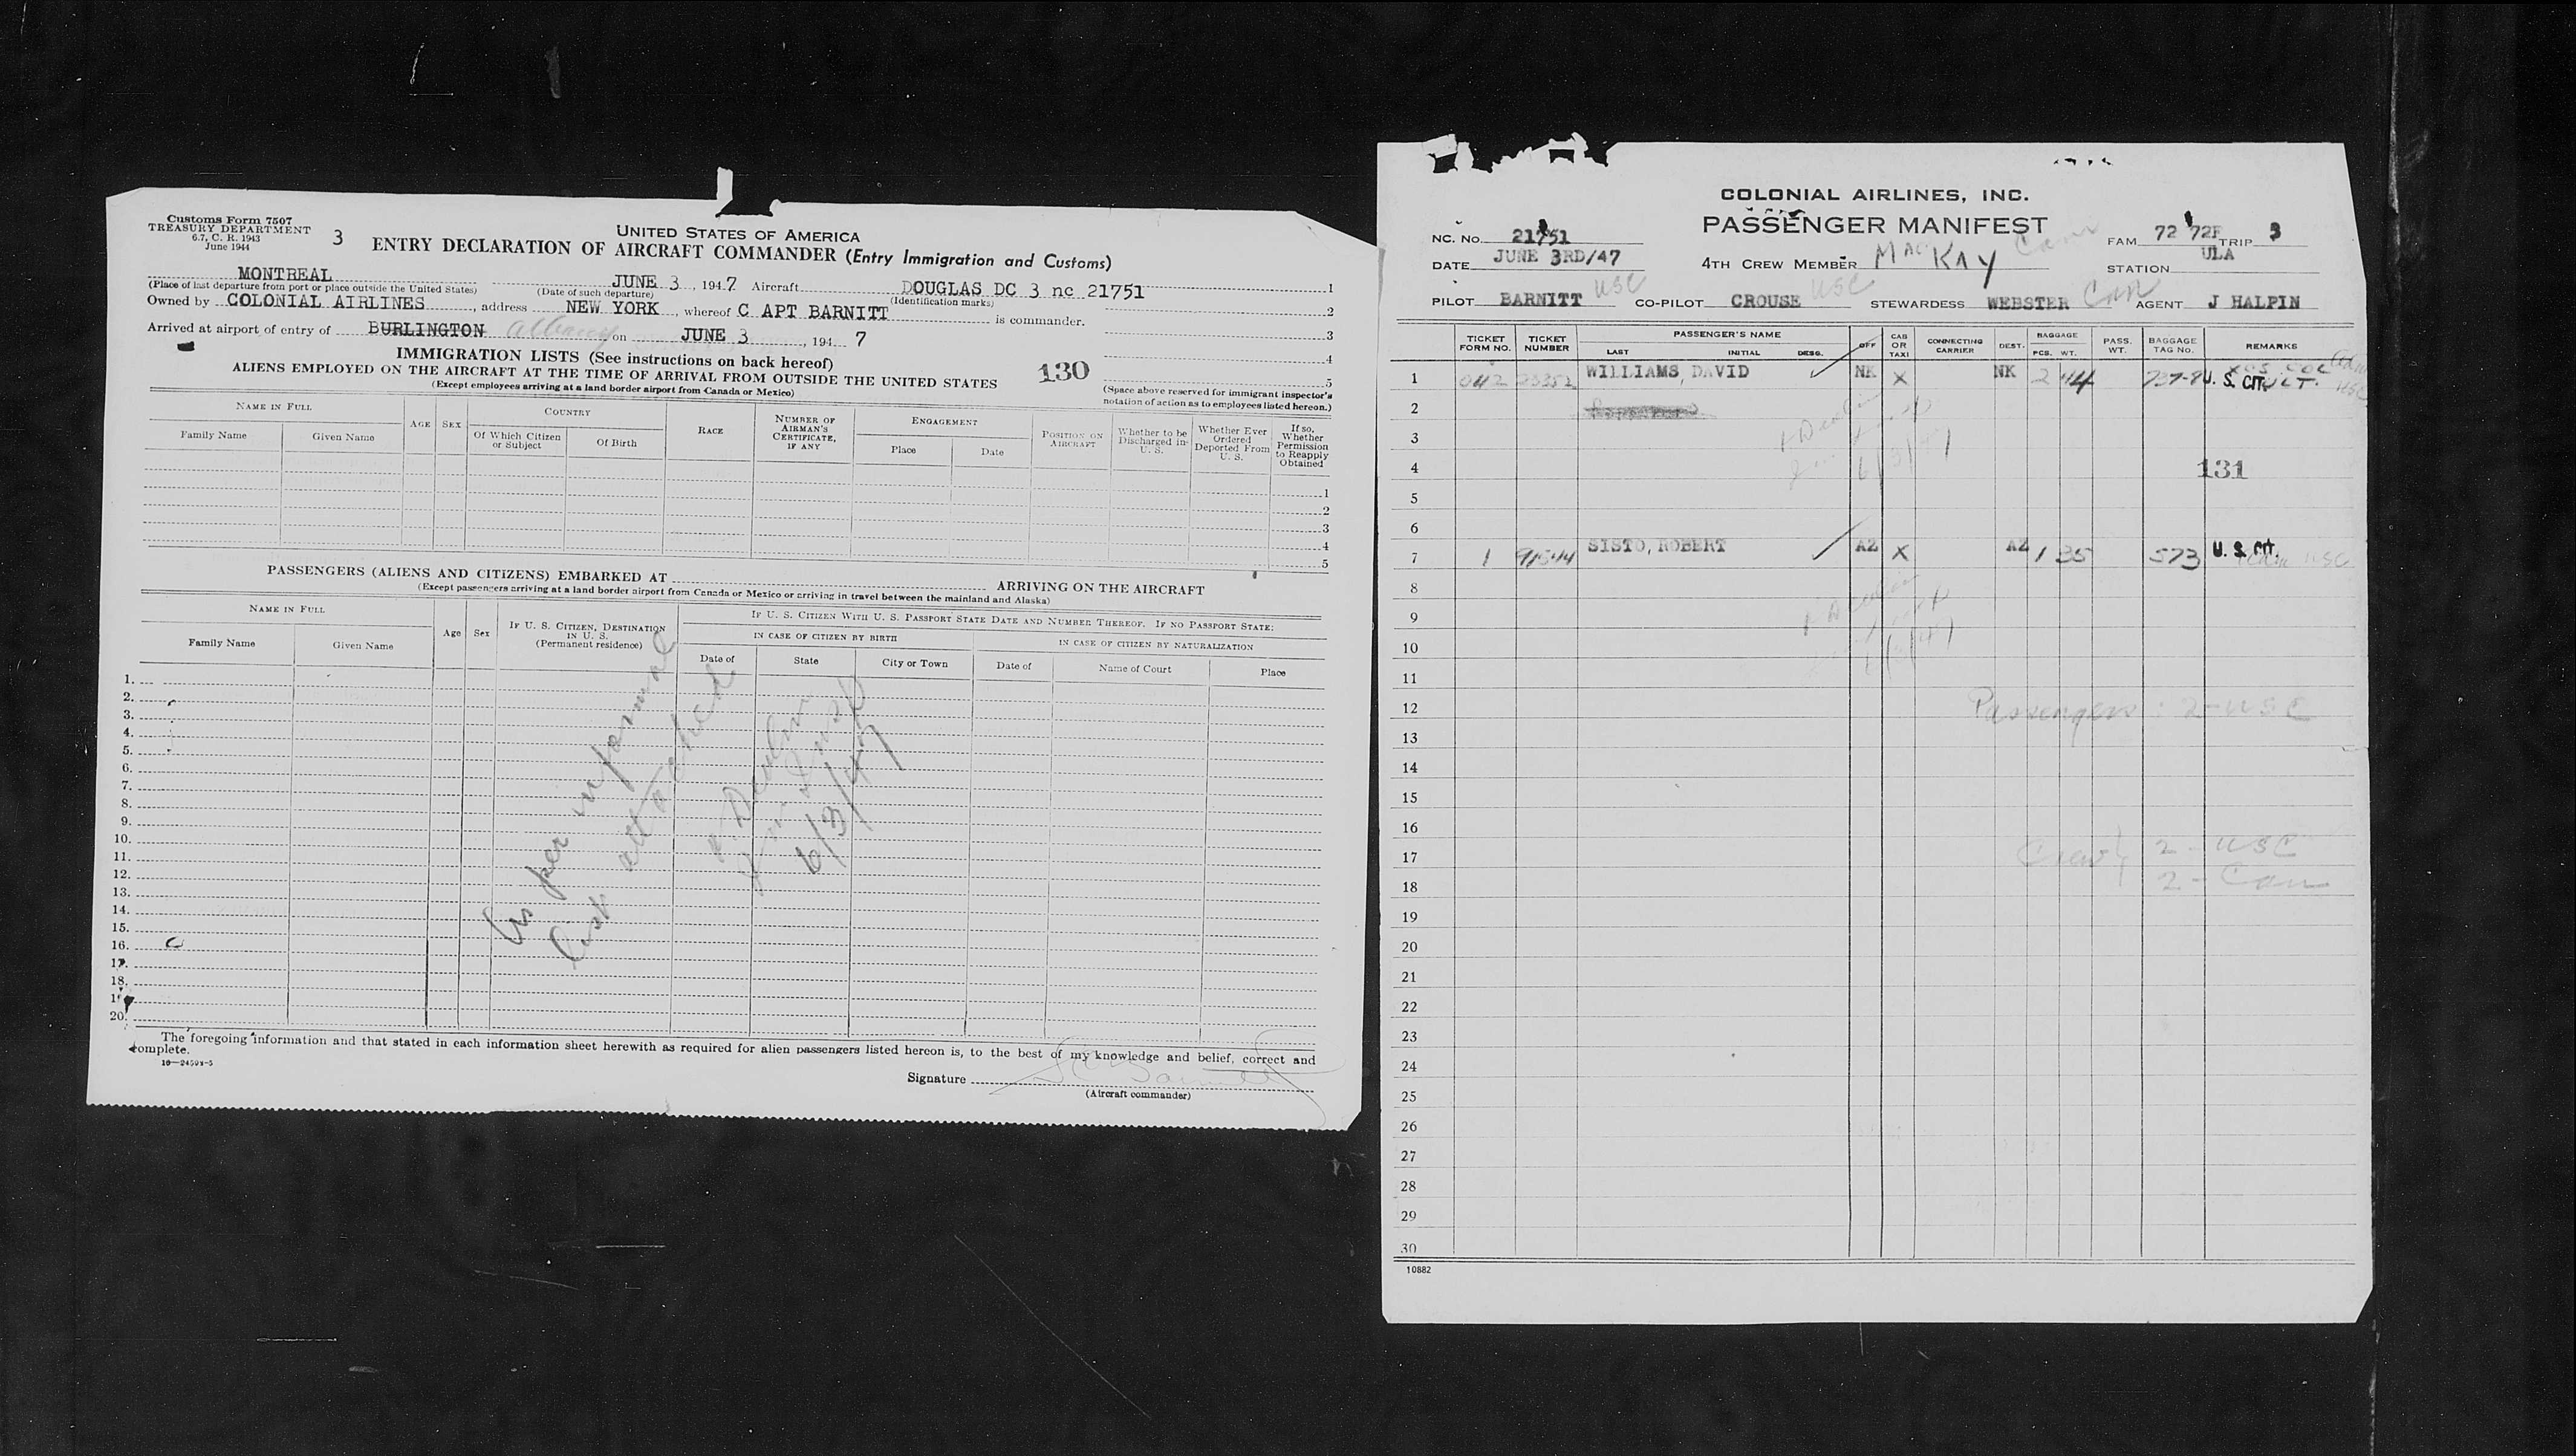 Customs Form 7507
TREASURY DEPARTMENT
6.7, C. R. 1943
June 1944
3
UNITED STATES OF AMERICA
ENTRY DECLARATION OF AIRCRAFT COMMANDER (Entry Immigration and Customs)
MONTREAL JUNE 3, 1947 Aircraft DOUGLAS DC 3 nc 21751 1
(Place of last departure from port or place outside the United States) (Date of such departure) (Identification marks)
Owned by COLONIAL AIRLINES, address NEW YORK, whereof C APT BARNITT is commander. 2
Arrived at airport of entry of BURLINGTON Albany on JUNE 3, 194 7 3
IMMIGRATION LISTS (See instructions on back hereof) 4
ALIENS EMPLOYED ON THE AIRCRAFT AT THE TIME OF ARRIVAL FROM OUTSIDE THE UNITED STATES 130 5
(Except employees arriving at a land border airport from Canada or Mexico)
(Space above reserved for immigrant inspector's notation of action as to employees listed hereon.)
NAME IN FULL
Family Name Given Name
AGE SEX
COUNTRY
Of Which Citizen or Subject Of Birth
RACE
NUMBER OF AIRMAN'S CERTIFICATE, IF ANY
ENGAGEMENT
Place Date
POSITION ON AIRCRAFT
Whether to be Discharged in U. S.
Whether Ever Ordered Deported From U. S.
If so, Whether Permission to Reapply Obtained
1
2
3
4
5
PASSENGERS (ALIENS AND CITIZENS) EMBARKED AT ARRIVING ON THE AIRCRAFT
(Except passengers arriving at a land border airport from Canada or Mexico or arriving in travel between the mainland and Alaska)
NAME IN FULL
Family Name Given Name
Age Sex
IF U. S. CITIZEN, DESTINATION IN U. S.
(Permanent residence)
IF U. S. CITIZEN WITH U. S. PASSPORT STATE DATE AND NUMBER THEREOF. IF NO PASSPORT STATE:
IN CASE OF CITIZEN BY BIRTH IN CASE OF CITIZEN BY NATURALIZATION
Date of State City or Town Date of Name of Court Place
1.
2.
3.
4.
5.
6.
7.
8.
9.
10.
11.
12.
13.
14.
15.
16.
17.
18.
19.
20.
As per informal
list attached
6/3/47
The foregoing information and that stated in each information sheet herewith as required for alien passengers listed hereon is, to the best of my knowledge and belief, correct and
complete.
Signature
(Aircraft commander)
COLONIAL AIRLINES, INC.
PASSENGER MANIFEST
NC. NO. 21751 FAM 72 72F TRIP 3
DATE JUNE 3RD/47 4TH CREW MEMBER MacKAY Can STATION ULA
PILOT BARNITT USC CO-PILOT CROUSE USC STEWARDESS WEBSTER Can AGENT J HALPIN
TICKET FORM NO. TICKET NUMBER PASSENGER'S NAME LAST INITIAL DESG. OFF CAB OR TAXI CONNECTING CARRIER DEST. BAGGAGE PCS. WT. PASS. WT. BAGGAGE TAG NO. REMARKS
1 042 WILLIAMS, DAVID NK X NK 2 44 U. S. CIT.
2
3
4 131
5
6
7 1 91544 SISTO, ROBERT AZ X AZ 1 35 573 U. S. CIT. USC
8
9
10
11
12 Passengers: 2-USC
13
14
15
16
17 Crew 2 - USC
18 2 - Can
19
20
21
22
23
24
25
26
27
28
29
30
10882